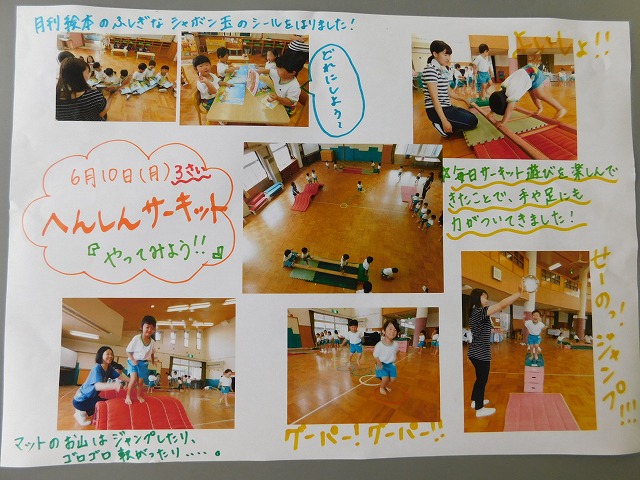 月刊絵本のふしぎなシャボン玉のシールをはりました!
どれにしよう〜
よいしょ!!
6月10日(月) 3さい
へんしんサーキット
『やってみよう!!』
毎日サーキット遊びを楽しんで
きたことで、手や足にも
力がついてきました!
せーのっ!ジャンプ!!!
グーパー!グーパー!!
マットのお山はジャンプしたり、
ゴロゴロ転がったり・・・・。